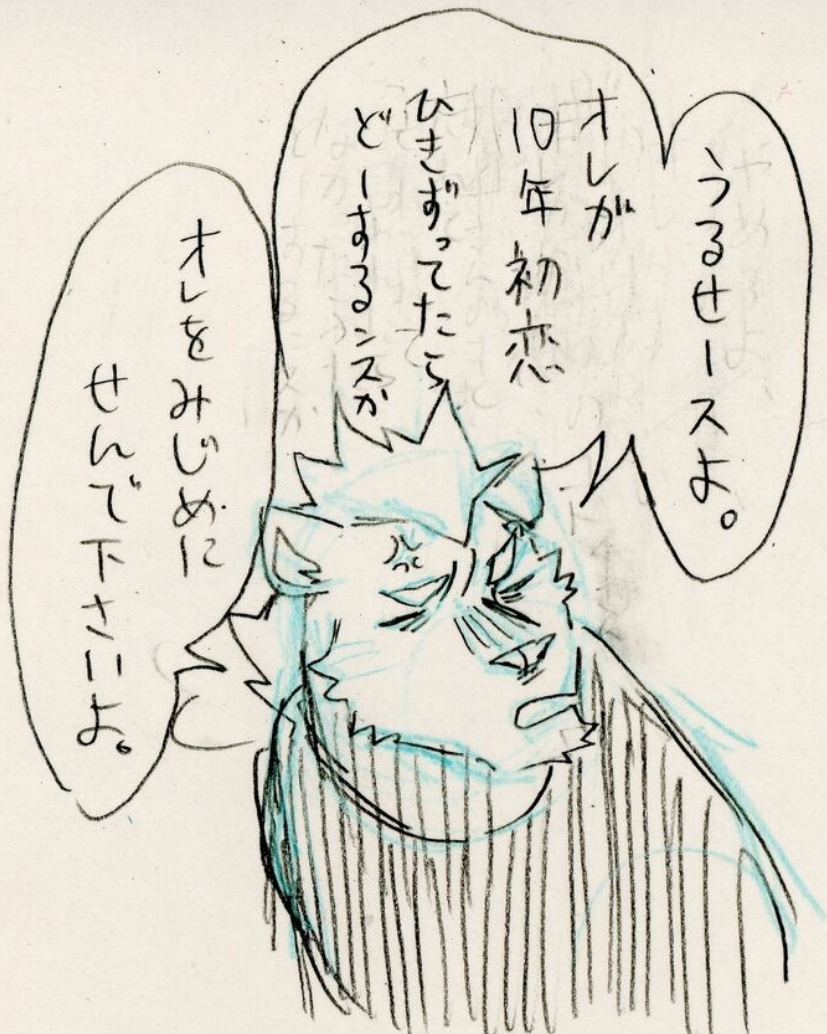 うるせースよ。
オレが
10年初恋
ひきずってたら
どーするンスか
オレをみじめに
せんで下さいよ。